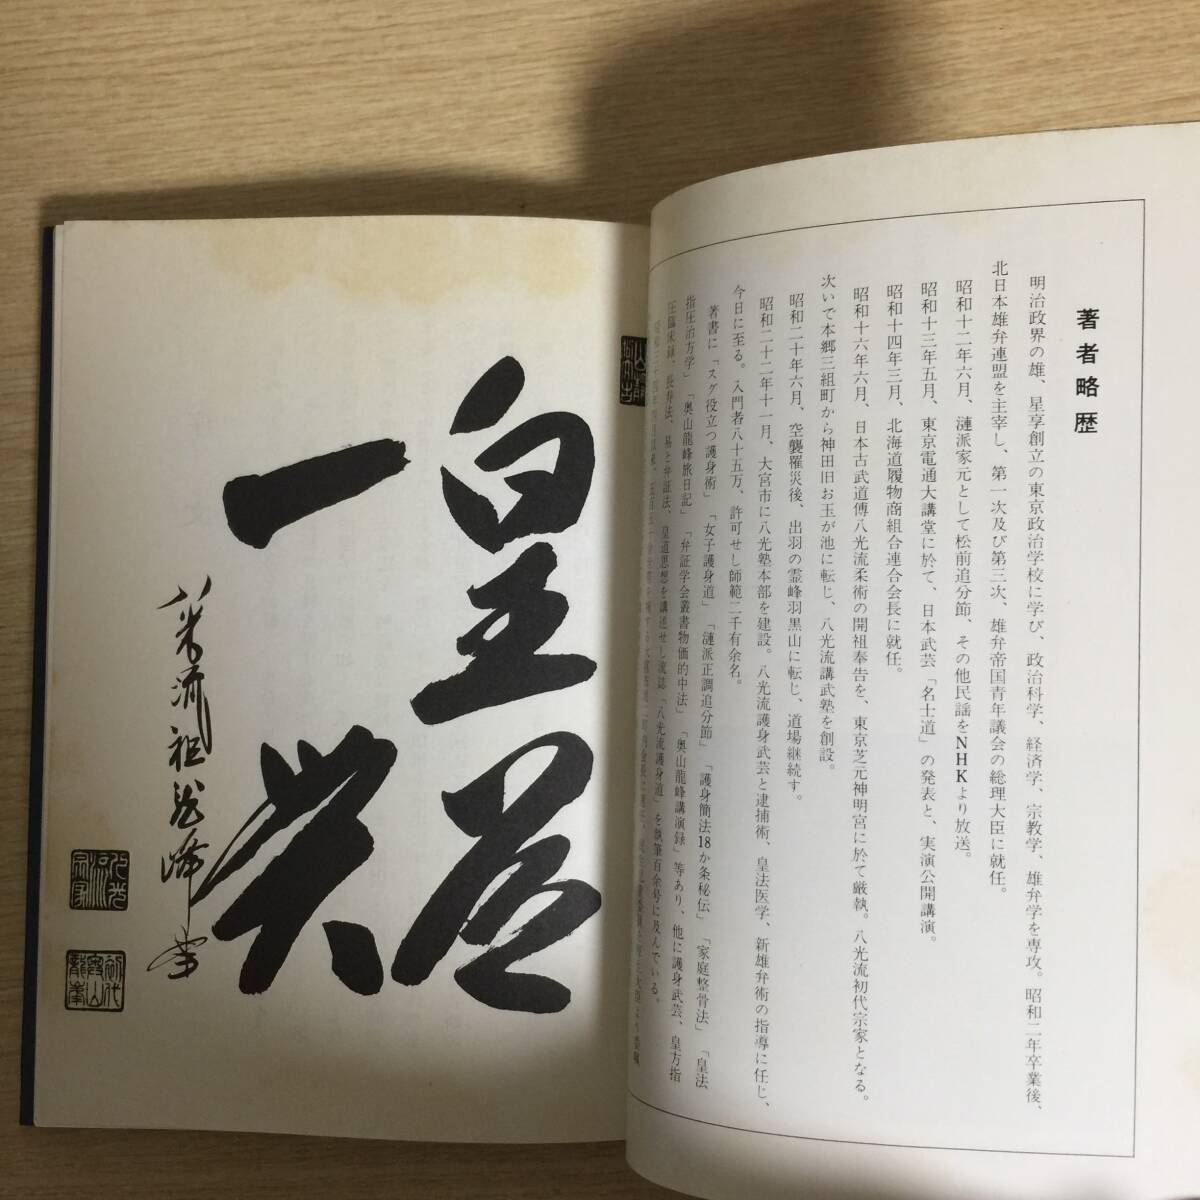 著者略歴
明治政界の雄、星享創立の東京政治学校に学び、政治科学、経済学、宗教学、雄弁学を専攻。昭和二年卒業後、
北日本雄弁連盟を主宰し、第一次及び第三次、雄弁帝国青年議会の総理大臣に就任。
昭和十二年六月、漣派家元として松前追分節、その他民謡をNHKより放送。
昭和十三年五月、東京電通大講堂に於て、日本武芸「名士道」の発表と、実演公開講演。
昭和十四年三月、北海道履物商組合連合会長に就任。
昭和十六年六月、日本古武道傳八光流柔術の開祖奉告を、東京芝元神明宮に於て厳執。八光流初代宗家となる。
次いで本郷三組町から神田旧お玉が池に転じ、八光流講武塾を創設。
昭和二十年六月、空襲罹災後、出羽の霊峰羽黒山に転じ、道場継続す。
昭和二十二年十一月、大宮市に八光塾本部を建設。八光流護身武芸と逮捕術、皇法医学、新雄弁術の指導に任じ、
今日に至る。入門者八十五万、許可せし師範二千有余名。
著書に「スグ役立つ護身術」「女子護身道」「漣派正調追分節」「護身簡法18か条秘伝」「家庭整骨法」「皇法
指圧治方学」「奥山龍峰旅日記」「弁証学会叢書物価的中法」「奥山龍峰講演録」等あり、他に護身武芸、皇方指
圧臨床録、長寿法、易と弁証法、皇道思想を講述せし流誌「八光流護身道」を執筆百余号に及んでいる。
皇道
一貫
八光流祖龍峰書
八光流宗家
初代奥山龍峰